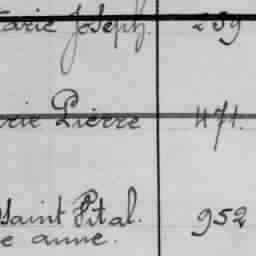 arie Joseph. 259
rie Pierre 471.
Saint Pital. 952
e anne.